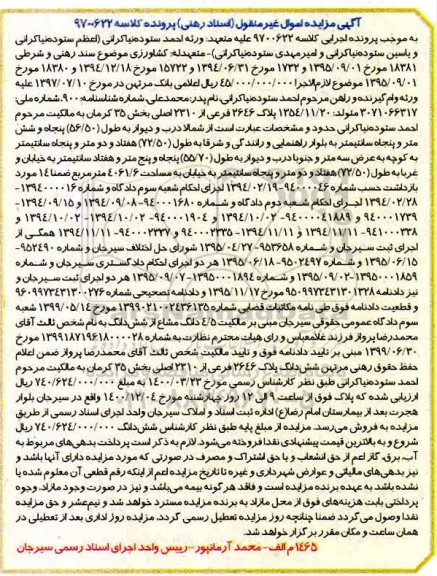 آگهی مزایده اموال غیرمنقول (اسناد رهنی) پرونده کلاسه ۹۷۰۰۶۲۲
به موجب پرونده اجرایی کلاسه ۹۷۰۰۶۲۲ علیه متعهد: ورثه احمد ستوده‌نیاکرانی (اعظم ستوده‌نیاکرانی
و یاسین ستوده‌نیاکرانی و امیرمهدی ستوده‌نیاکرانی)-متعهدله: کشاورزی موضوع سند رهنی و شرطی
۱۸۳۸۱ مورخ ۱۳۹۵/۰۹/۰۱ و ۱۷۳۲ مورخ ۱۳۹۴/۰۶/۳۱ و ۱۵۷۲۲ مورخ ۱۳۹۴/۱۲/۱۸ و ۱۸۳۸۰ مورخ
۱۳۹۵/۰۹/۰۱ موضوع لازم‌الاجرا ۴۵/۰۰۰/۰۰۰/۰۰۰ ریال اعلامی بانک مرتهن در مورخ ۱۳۹۷/۰۷/۱۰ علیه
ورثه وام گیرنده و راهن مرحوم احمد ستوده‌نیاکرانی نام پدر: محمدعلی شماره شناسنامه: ۹۰۰ شماره ملی:
۳۰۷۱۰۶۶۳۱۷ متولد: ۱۳۵۴/۱۱/۲۰ پلاک ۲۶۴۶ فرعی از ۲۳۱۰ اصلی بخش ۳۵ کرمان به مالکیت مرحوم
احمد ستوده‌نیاکرانی حدود و مشخصات عبارت است از شمالا درب و دیوار به طول (۵۶/۵۰) پنجاه و شش
متر و پنجاه سانتیمتر به بلوار راهنمایی و رانندگی و شرقا به طول (۷۲/۵۰) هفتاد و دو متر و پنجاه سانتیمتر
به کوچه به عرض سه متر و جنوبا درب و دیوار به طول (۵۵/۷۰) پنجاه و پنج متر و هفتاد سانتیمتر به خیابان و
غربا به طول (۷۲/۵۰) هفتاد و دو متر و پنجاه سانتیمتر به خیابان به مساحت ۴۰۶۱/۶ مترمربع ضمنا ۱۴ مورد
همگی از
اجرای ثبت سیرجان و شماره
شورای حل اختلاف سیرجان و شماره
هر دو اجرای احکام دادگستری سیرجان و شماره
هر دو اجرای ثبت سیرجان و
نیز دادنامه
مورخ ۱۳۹۵/۱۱/۱۷ و دادنامه تصحیحی شماره
و قطعیت دادنامه فوق طی نامه مکاتبات قضایی شماره
مورخ ۱۳۹۹/۰۵/۱۴ شعبه
سوم دادگاه عمومی حقوقی سیرجان مبنی بر مالکیت ۴/۵ دانگ مشاع از شش‌دانگ به نام شخص ثالث آقای
محمدرضا پرواز فرزند غلامعباس و رای هیات محترم نظارت به شماره
مورخ
۱۳۹۹/۰۶/۳۰ مبنی بر تایید دادنامه فوق و تایید مالکیت شخص ثالث آقای محمدرضا پرواز ضمن اعلام
حفظ حقوق رهنی مرتهن شش‌دانگ پلاک ۲۶۴۶ فرعی از ۲۳۱۰ اصلی بخش ۳۵ کرمان به مالکیت مرحوم
احمد ستوده‌نیاکرانی طبق نظر کارشناس رسمی مورخ ۱۴۰۰/۰۳/۲۳ به مبلغ ۷۴۰/۶۲۴/۰۰۰/۰۰۰ ریال
ارزیابی شده که پلاک فوق از ساعت ۹ الی ۱۲ روز چهارشنبه مورخ ۱۴۰۰/۱۲/۰۴ واقع در سیرجان بلوار
هجرت بعد از بیمارستان امام رضا(ع) اداره ثبت اسناد و املاک سیرجان واحد اجرای اسناد رسمی از طریق
مزایده به فروش می‌رسد. مزایده از مبلغ پایه طبق نظر کارشناس شش‌دانگ ۷۴۰/۶۲۴/۰۰۰/۰۰۰ ریال
شروع و به بالاترین قیمت پیشنهادی نقدا فروخته می‌شود. لازم به ذکر است پرداخت بدهی‌های مربوط به
آب، برق، گاز اعم از حق انشعاب و یا حق اشتراک و مصرف در صورتی که مورد مزایده دارای آنها باشد و
نیز بدهی‌های مالیاتی و عوارض شهرداری و غیره تا تاریخ مزایده اعم از اینکه رقم قطعی آن معلوم شده یا
نشده باشد به عهده برنده مزایده است و فاقد هر گونه بیمه می‌باشد و نیز در صورت وجود مازاد، وجوه
پرداختی بابت هزینه‌های فوق از محل مازاد به برنده مزایده مسترد خواهد شد و نیم‌عشر و حق مزایده
نقدا وصول می‌گردد ضمنا چنانچه روز مزایده تعطیل رسمی گردد، مزایده روز اداری بعد از تعطیلی در
همان ساعت و مکان مقرر برگزار خواهد شد.
۱۴۶۵ م الف-محمد آرمانپور-رییس واحد اجرای اسناد رسمی سیرجان